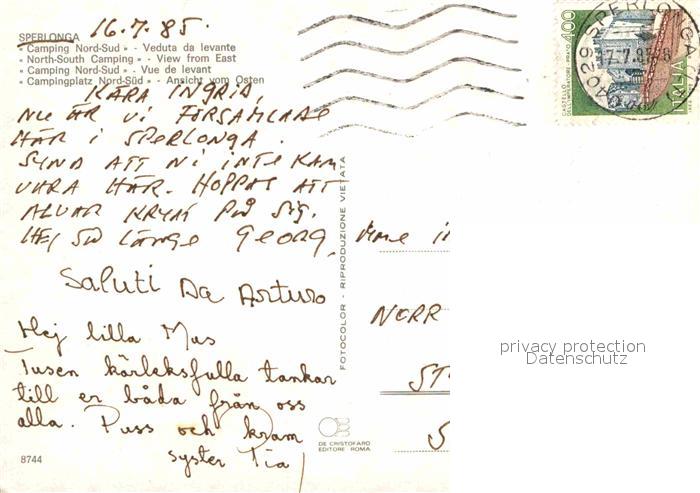 16.7.85.
SPERLONGA
« Camping Nord-Sud » - Veduta da levante
« North-South Camping » - View from East
« Camping Nord-Sud » - Vue de levant
« Campingplatz Nord-Süd » - Ansicht vom Osten
KÄRA INGRID,
NU ÄR VI FÖRSAMLADE
HÄR I SPERLONGA.
SYND ATT NI INTE KAN
VARA HÄR. HOPPAS ATT
ALVAR KRYAT PÅ SIG.
HEJ SÅ LÄNGE GEORG,
Saluti Da Arturo
Hej lilla Mus
Tusen kärleksfulla tankar
till er båda från oss
alla. Puss och kram
syster Pia
8744
FOTOCOLOR - RIPRODUZIONE VIETATA
DE CRISTOFARO
EDITORE ROMA
NORR
ST
S
400
CASTELLO
DELL'IMPERATORE - PRATO
ITALIA
04029 SPERLONGA
17.7.85
privacy protection
Datenschutz